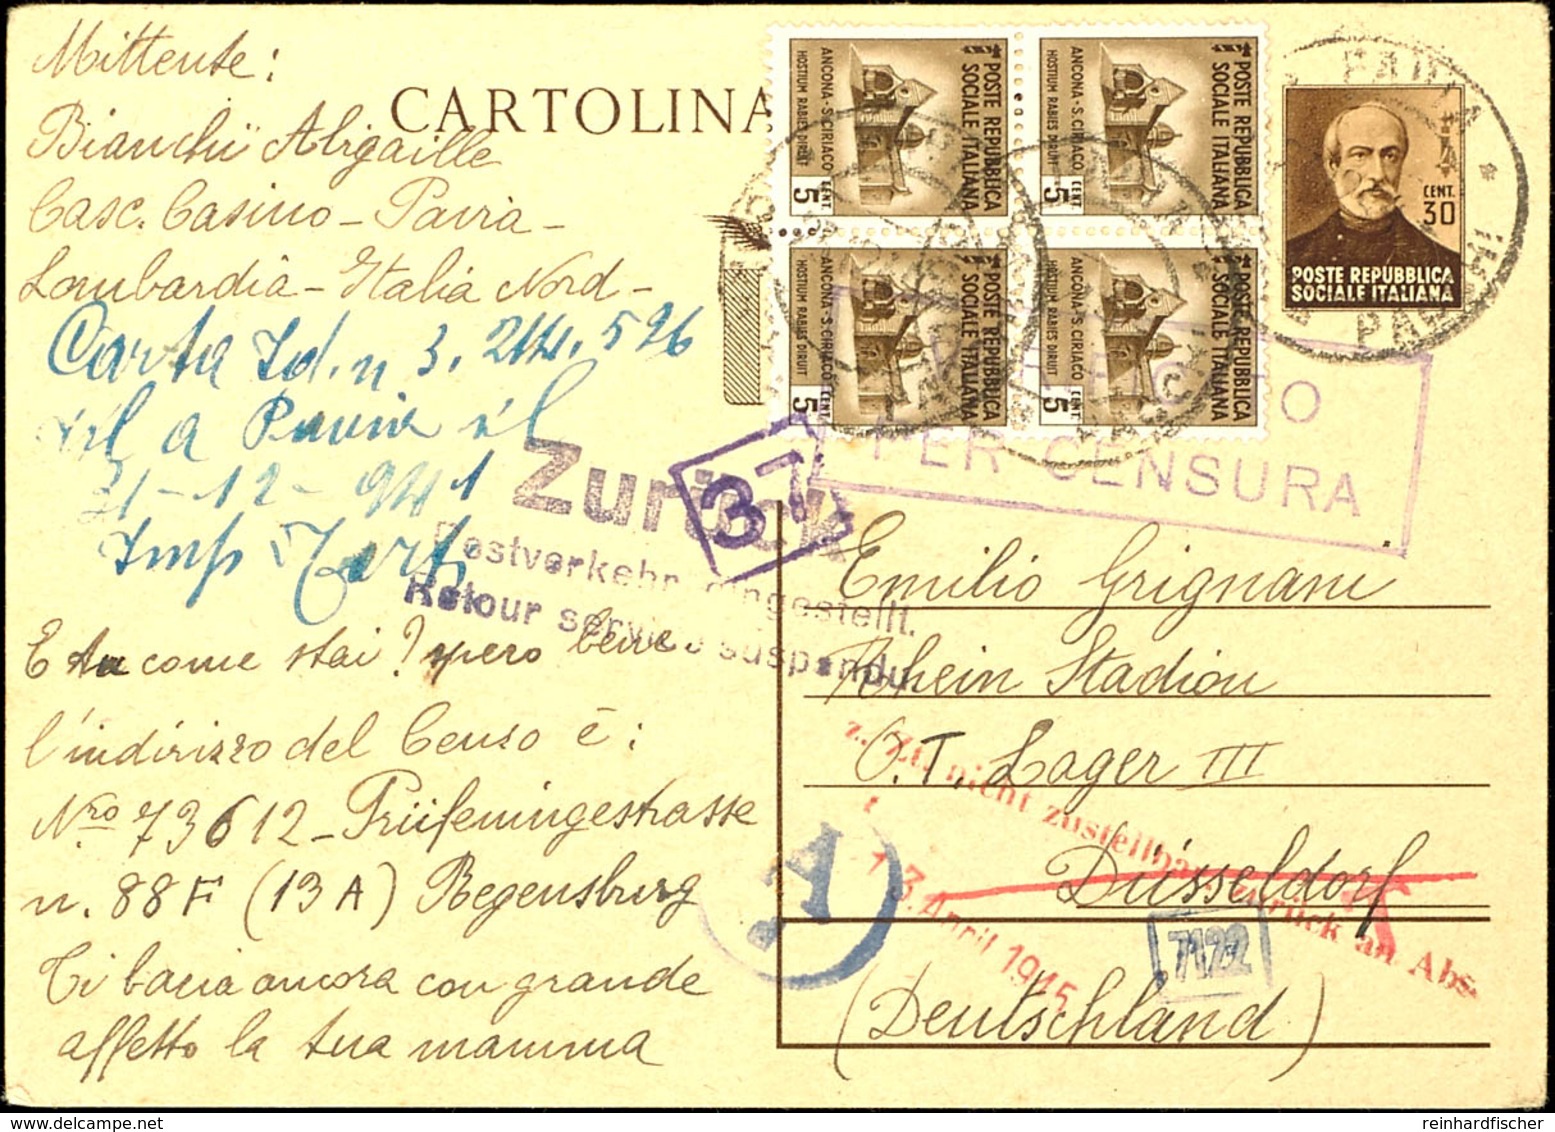 Mittente:
Bianchi Abigaille
Casc. Casino - Pavia -
Lombardia - Italia Nord -
Carta Id. n 3.244.526
ril a Pavia il
21-12-941
E tu come stai? spero bene
l'indirizzo del Censo è:
Nro 73612 - Prüfeningestrasse
n. 88F (13A) Regensburg
Ti bacia ancora con grande
affetto la tua mamma
CARTOLINA
POSTE REPUBBLICA
SOCIALE ITALIANA
ANCONA - S. CIRIACO
HOSTIUM RABIES DIRUIT
CENT. 5
POSTE REPUBBLICA
SOCIALE ITALIANA
ANCONA - S. CIRIACO
HOSTIUM RABIES DIRUIT
CENT. 5
POSTE REPUBBLICA
SOCIALE ITALIANA
ANCONA - S. CIRIACO
HOSTIUM RABIES DIRUIT
CENT. 5
POSTE REPUBBLICA
SOCIALE ITALIANA
ANCONA - S. CIRIACO
HOSTIUM RABIES DIRUIT
CENT. 5
CENT.
30
POSTE REPUBBLICA
SOCIALE ITALIANA
PER CENSURA
Zurück
37
Postverkehr eingestellt.
Retour service suspendu
Emilio Grignani
Rhein Stadion
O.T. Lager III
Düsseldorf
(Deutschland)
z. Zt. nicht zustellbar, zurück an Abs
13. April 1945
A
7122
reinhardfischer